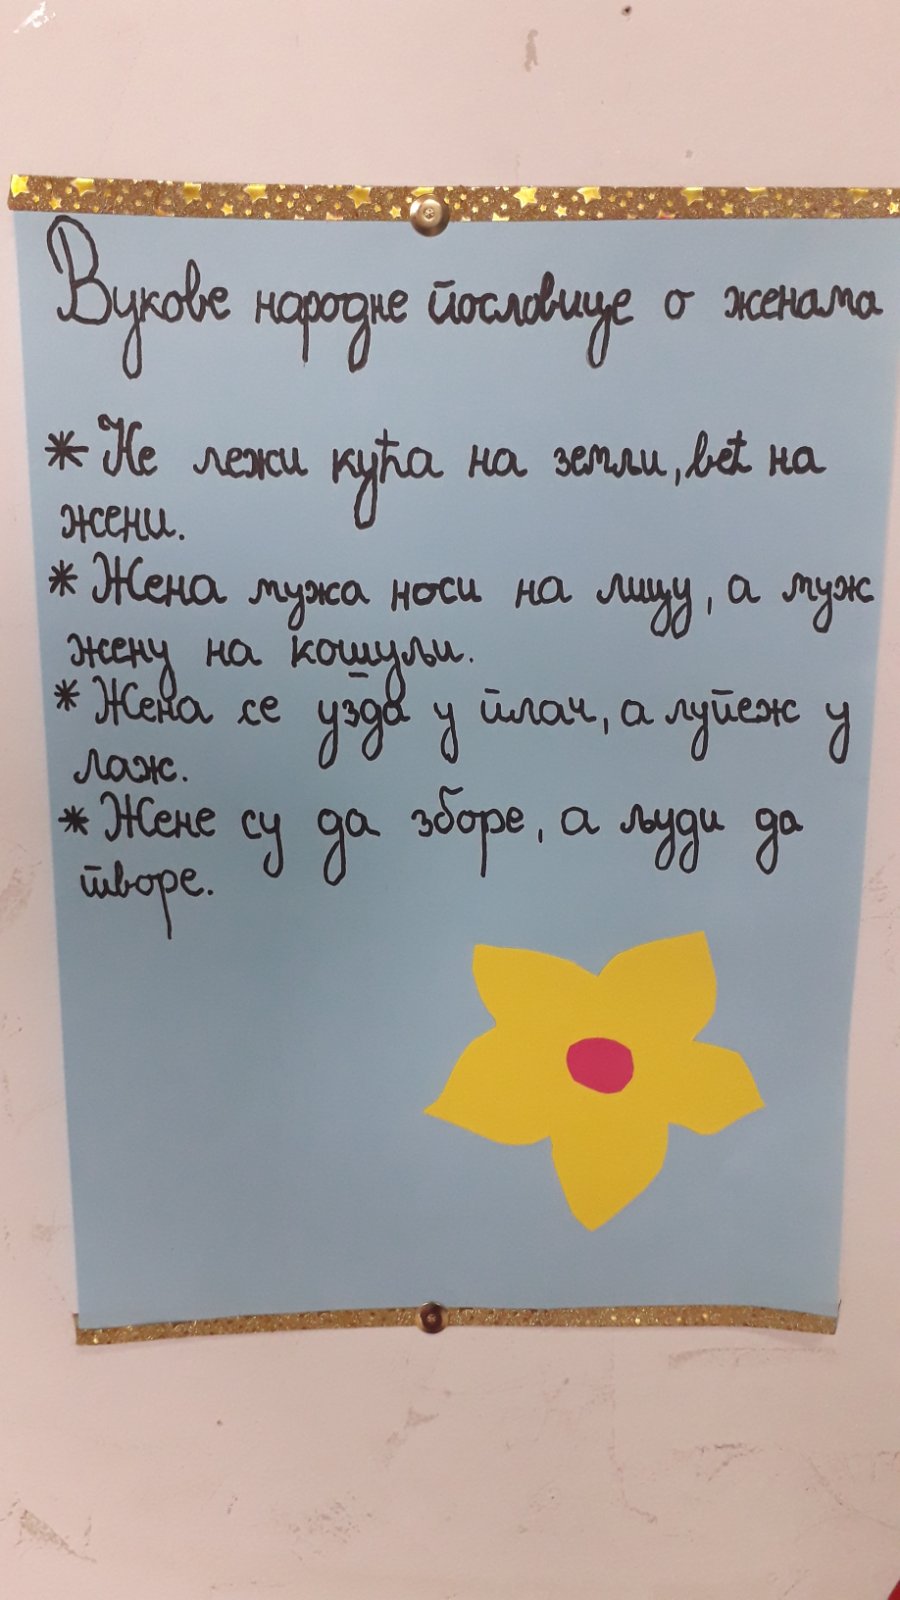 Вукове народне пословице о женама
* Не лежи кућа на земљи, већ на
жени.
* Жена мужа носи на лицу, а муж
жену на кошуљи.
* Жена се узда у плач, а лупеж у
лаж.
* Жене су да зборе, а људи да
творе.